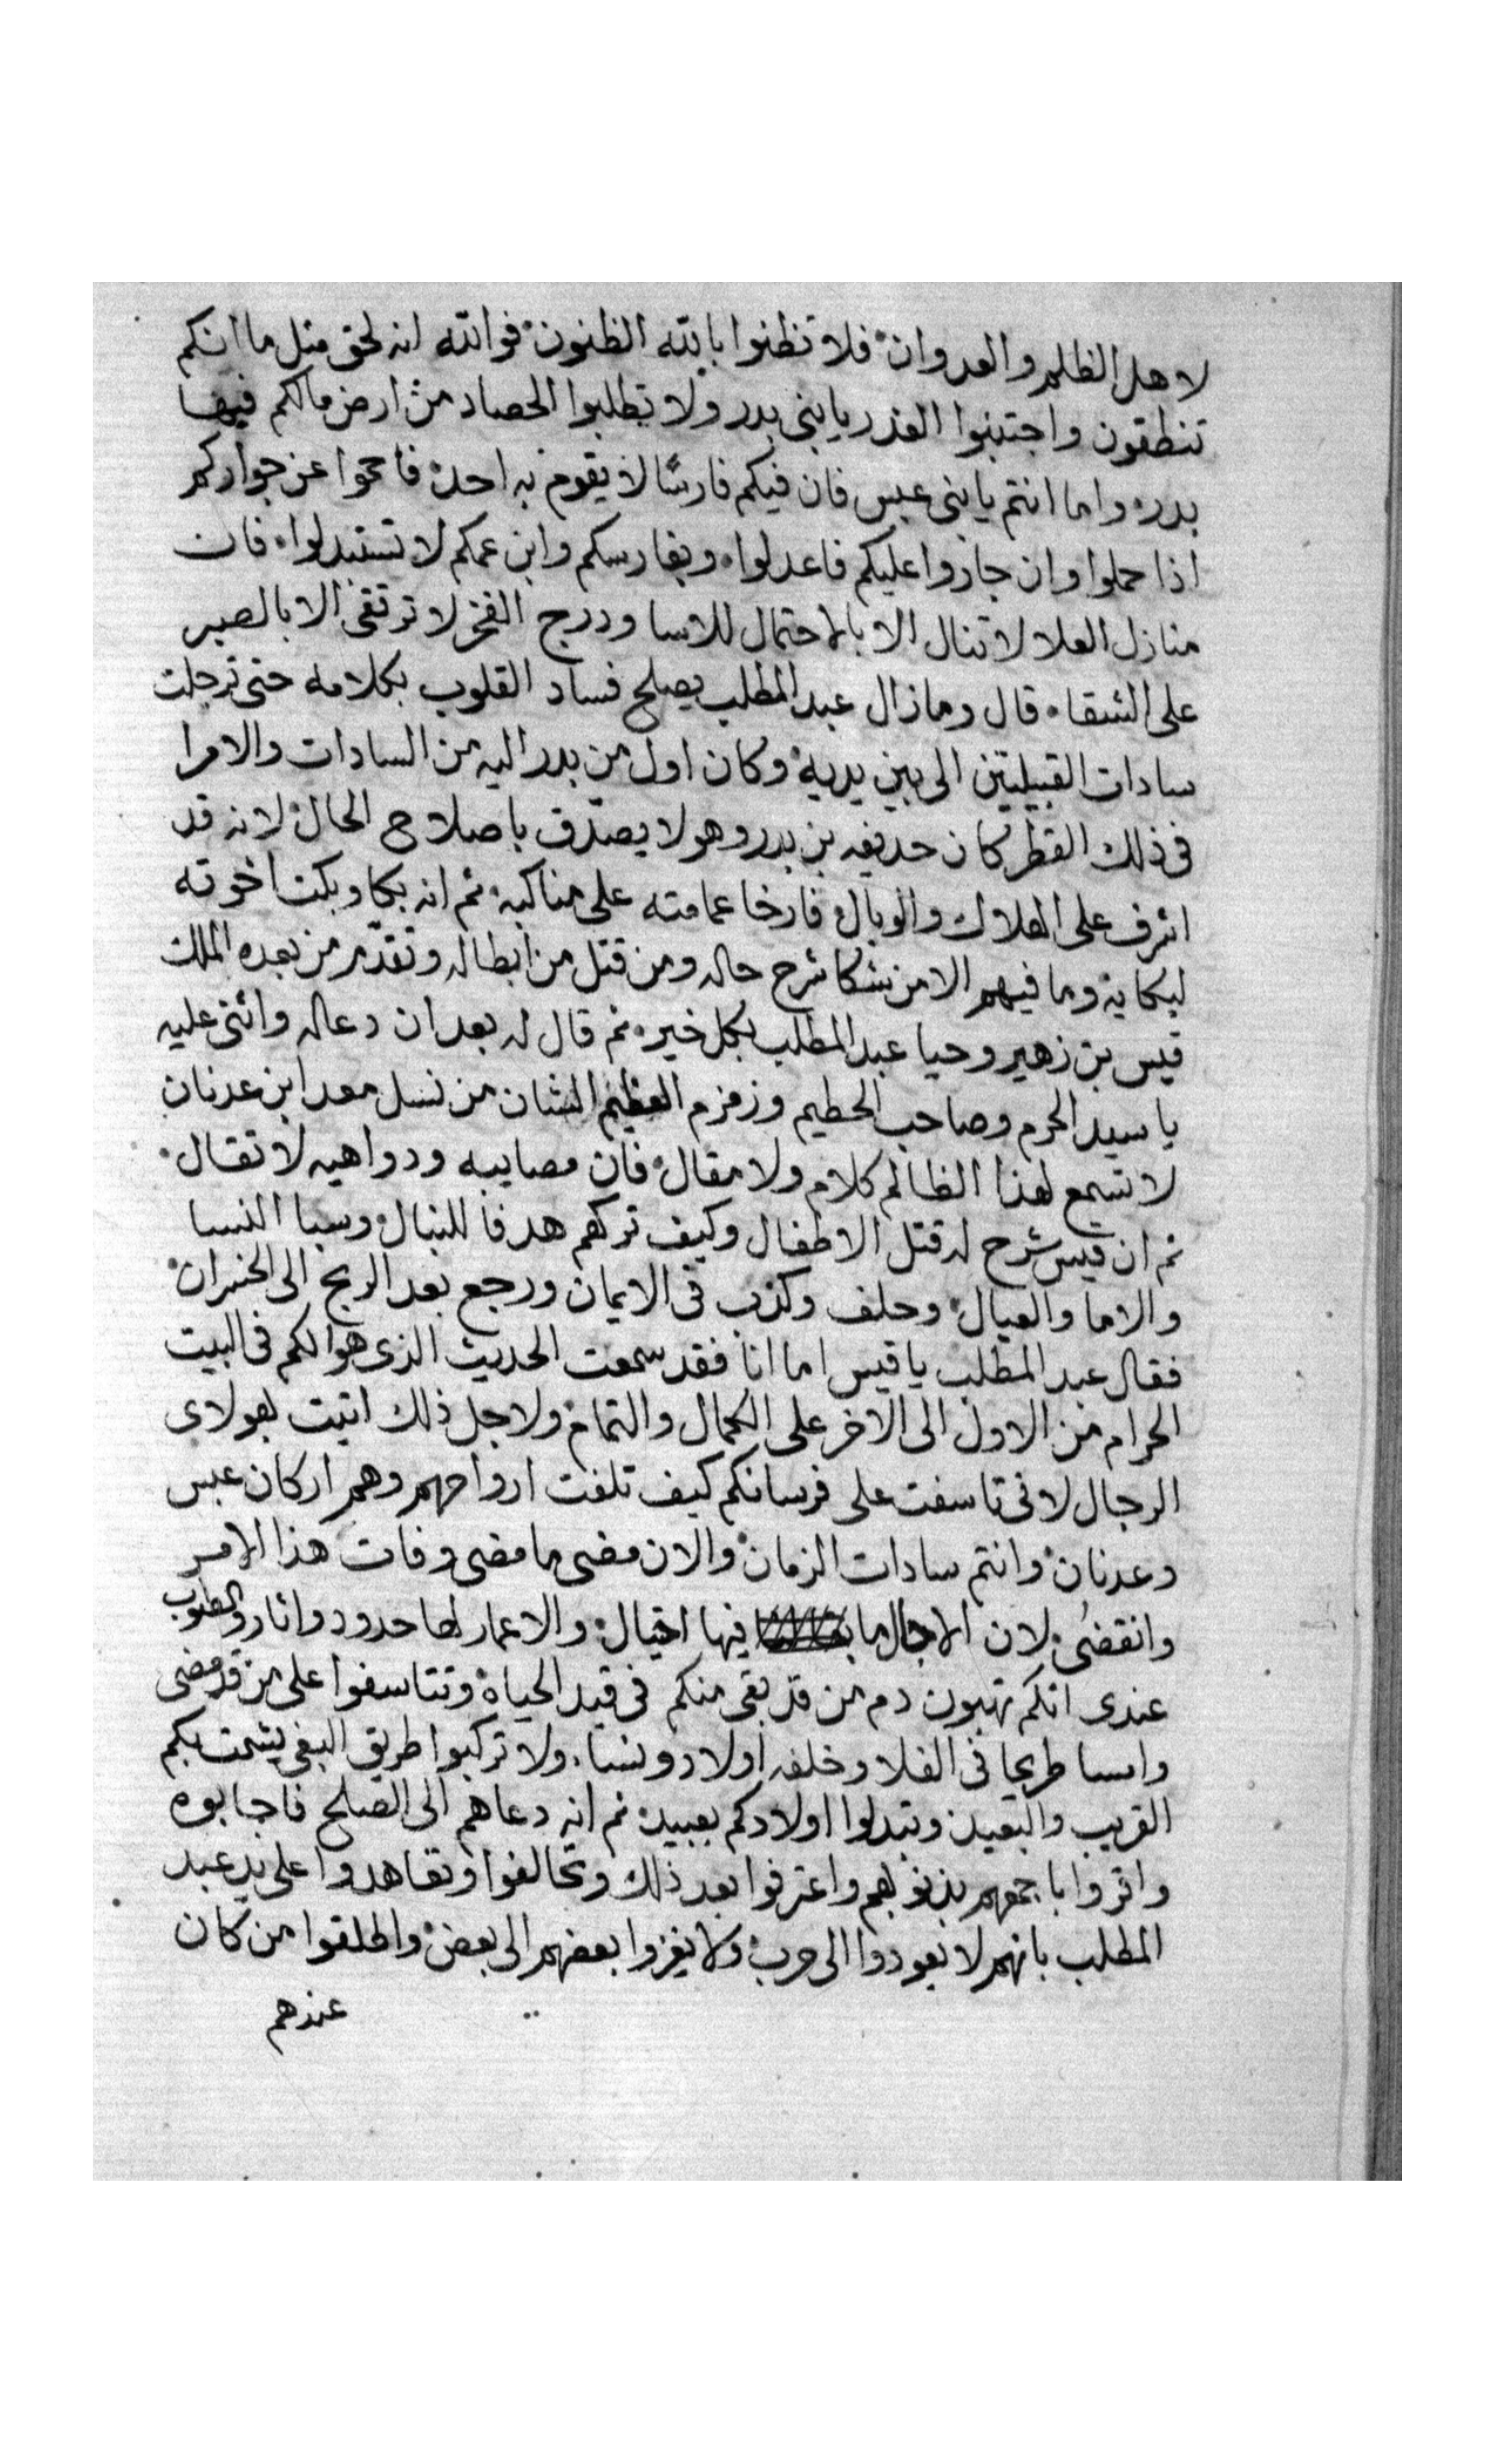 لاهل الظلم والعدوان فلا تظنوا بالله الظنون فوالله انه لحق مثل ما انكم
تنطقون واجتنبوا الغدر يا بنى بدر ولا تطلبوا الحصاد من ارض مالكم فيها
بدر واما انتم يا بنى عبس فان فيكم فارسًا لا يقوم به احد فا حموا عن جواركم
اذا حملوا وان جاروا عليكم فاعدلوا وبفارسكم وابن عمكم لا تستبدلوا فان
منازل العلا لا تنال الا بالاحتمال للاسا ودرج الفخر لا ترتقى الا بالصبر
على الشقاء قال ومازال عبد المطلب يصلح فساد القلوب بكلامه حتى ترجلت
سادات القبيلتين الى بين يديه وكان اول من بدر اليه من السادات والامرا
فى ذلك القطر كان حديفه بن بدر وهو لا يصدّق باصلاح الحال لانه قد
اشرف على الهلاك والوبال فارخا عمامته على مناكبه ثم انه بكا وبكت اخوته
لبكايه وما فيهم الا من شكا شرح حاله ومن قتل من ابطاله وتقدّم من بعده الملك
قيس بن زهير وحيا عبد المطلب بكل خير ثم قال له بعد ان دعاله واثنى عليه
يا سيد الحرم وصاحب الحطيم وزمزم العظيم الشان من نسل معد ابن عدنان
لا تسمع لهذا الظالم كلام ولا مقال فان مصايبه ودواهيه لا تقال
ثم ان قيس شرح له قتل الاطفال وكيف تركهم هدفا للنبال وسبا النسا
والاما والعيال وحلف وكذب فى الايمان ورجع بعد الربح الى الخسران
فقال عبد المطلب يا قيس اما انا فقد سمعت الحديث الذى هوا لكم فى البيت
الحرام من الاول الى الاخر على الكمال والتمام ولاجل ذلك اتيت بهولاى
الرجال لانى تاسفت على فرسانكم كيف تلفت ارواحهم وهم اركان عبس
وعدنان وانتم سادات الزمان والان مضى ما مضى وفات هذا الامر
وانقضى لان الاجال ما فيها احتيال والاعمار لها حدود واثار والمطلوب
عندى انكم تهبون دم من قد بقى منكم فى قيد الحياة وتتاسفوا على من قد مضى
وامسا طريحا فى الفلا وخلفه اولاد ونسا ولا تركبوا طريق البغى يشمت بكم
القريب والبعيد وتبدلوا اولادكم بعبيد ثم انه دعاهم الى الصلح فاجابوه
واقروا باجمعهم بذنوبهم واعترفوا بعد ذلك وتحالفوا وتعاهدوا على يد عبد
المطلب بانهم لا يعودوا الى حرب ولا يغزوا بعضهم الى بعض واطلقوا من كان
عندهم